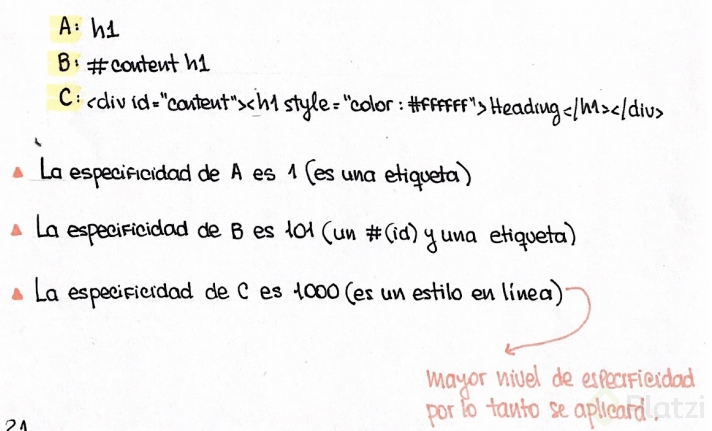 A: h1
B: #content h1
C: <div id="content"><h1 style="color: #ffffff">Heading</h1></div>
La especificidad de A es 1 (es una etiqueta)
La especificidad de B es 101 (un #(id) y una etiqueta)
La especificidad de C es 1000 (es un estilo en línea)
mayor nivel de especificidad
por lo tanto se aplicará.
Platzi
21